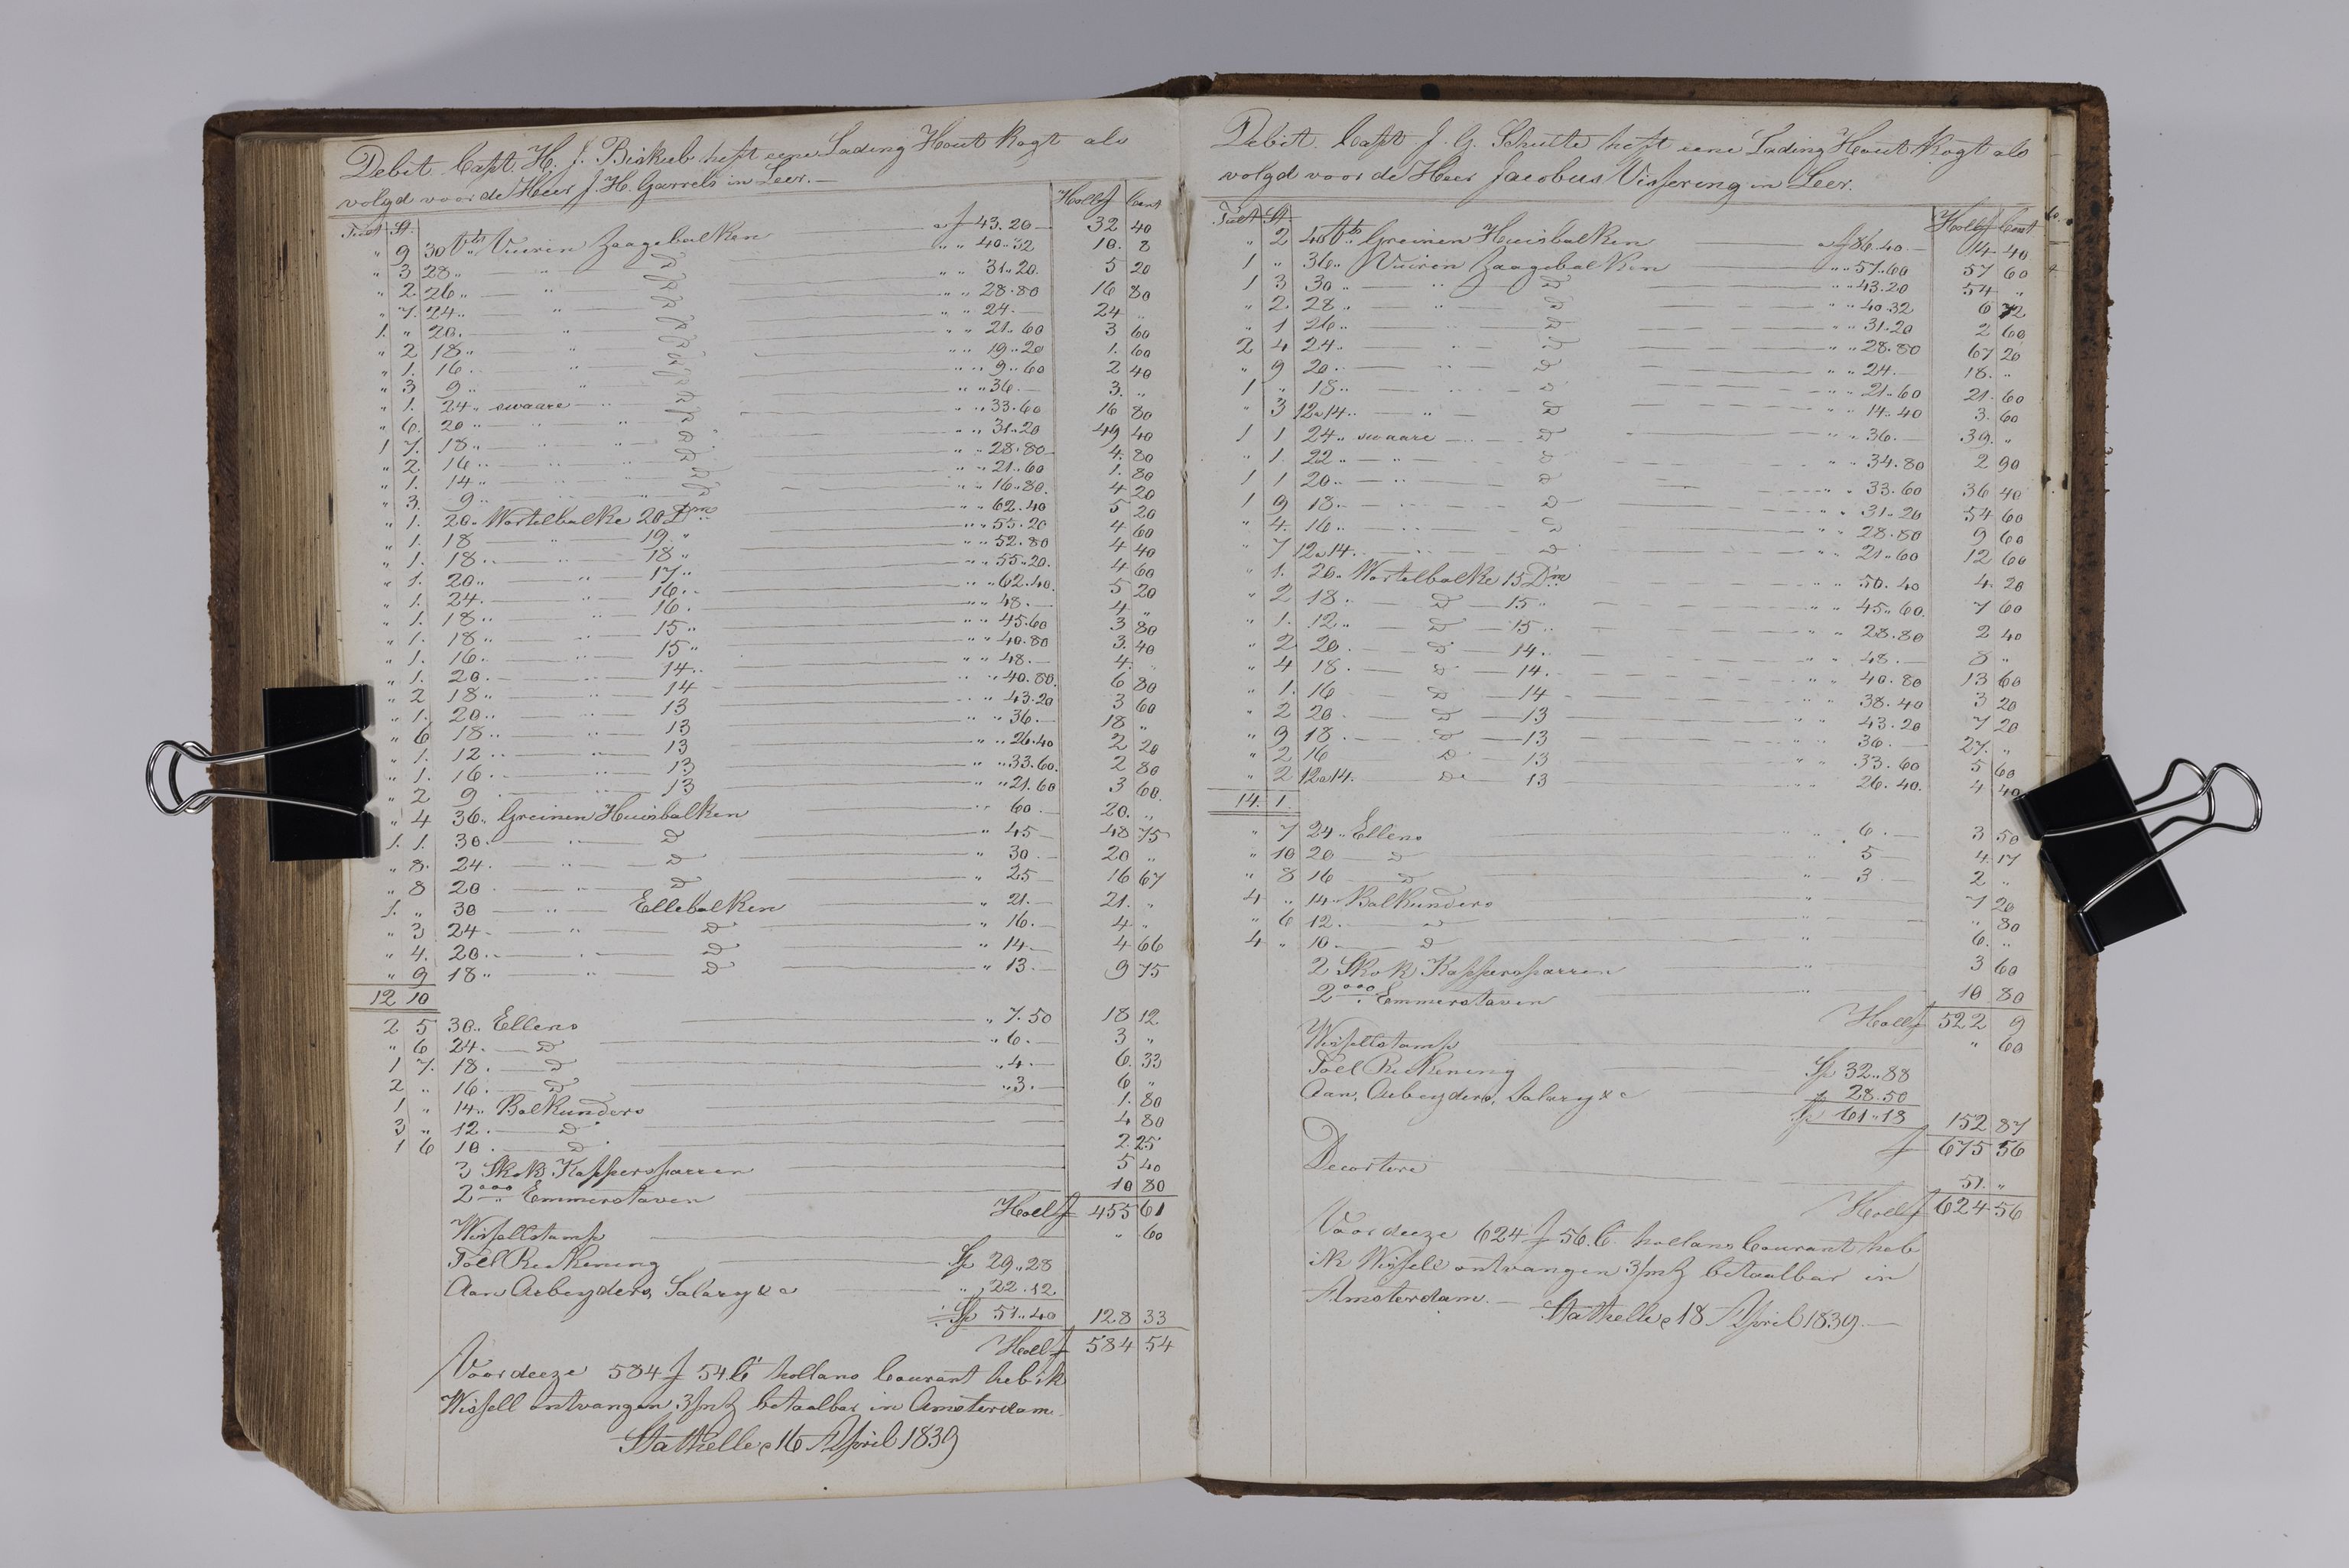 Debit. Capt. H. J. Biskub heft eene Lading Hout Kogt als
volgd voor de Heer J. H. Garrels in Leer. —
Tult St. Hollf Cent
" 9 30 Vts Vuiren Zaagebalken a f 43.20 — 32 40
" 3 28 " — " — D " " 40.32 10. 8
" 2 26 " — " — D " " 31.20. 5 20
" 7. 24 " — " — D " " 28.80 16 80
1. " 20. — " — D " " 24. — 24 "
" 2 18 " — " — D " " 21.60 3 60
" 1. 16. — " — D " " 19.20 1. 60
" 3 9 " — " — D " " 9.60 2 40
" 1. 24 " swaare — " — D " " 36. — 3. "
" 6. 20 " — " — " — D " " 33.60 16 80
1 7. 18 " — " — " — D " " 31.20 49 40
" 2. 16 " — " — " — D " " 28.80 4. 80
" 1. 14 " — " — " — D " " 21.60 1. 80
" 3. 9 " — " — " — D " " 16.80. 4 20
" 1. 20 " Wortelbalke 20 Dm " " 62.40 5 20
" 1. 18 — " — 19 " " " 55.20 4 60
" 1. 18 " — " — 18 " " " 52.80 4 40
" 1. 20 " — " — 17 " " " 55.20. 4 60
" 1. 24. — " — 16 " " " 62.40. 5 20
" 1. 18 " — " — 16. " " 48. — 4 "
" 1. 18 " — " — 15 " " " 45.60 3 80
" 1. 16. — " — 15 " " " 40.80 3. 40
" 1. 20. — " — 14. " " 48. — 4. "
" 2 18 " — " — 14 " " 40.80. 6 80
" 1. 20 " — " — 13 " " 43.20 3 60
" 6 18 " — " — 13 " " 36. — 18 "
" 1. 12 " — " — 13 " " 26.40 2 20
" 1. 16. — " — 13 " " 33.60. 2 80
" 2 9 — " — 13 " " 21.60 3 60.
" 4 36. Greinen Huisbalken " 60 — 20. "
1. 1. 30. — " — D " 45 — 48 75
" 8. 24. — " — D " 30. — 20 "
" 8 20 — " — D " 25 — 16 67
1. " 30 — " — Ellebalken " 21. — 21. "
" 3 24 — " — D " 16. — 4 "
" 4. 20 " — " — D " 14. — 4 66
" 9 18 " — " — D " 13. — 9 75
12 10
2 5 30 " Ellens " 7.50 18 12
" 6 24. — D " 6. — 3 "
1 7. 18. — D " 4. — 6. 33
2 " 16. — D " 3. — 6 "
1 " 14 " Balkunders 1. 80
3 " 12. — D 4 80
1 6 10. — D 2 25
3 Skok Kappersparren 5 40
2 ooo " Emmerstaven 10 80
Hollf 455 61
Wissellstamp " 60
Toll Rekening Sp 29.28
Aan Arbeyders, Salary &c " 22.12
Sp 51.40 128 33
Hollf 584 54
Voor deeze 584 f 54. Ct hollans Courant heb ik
Wissell ontvangen 3/m betaalbar in Amsterdam.
Stathelle 16 April 1839
Debit. Capt J. G. Schulte heft eene Lading Hout Kogt als
volgd voor de Heer Jacobus Vissering in Leer.
Tult St. Hollf Cent
" 2 40 Vts Greinen Huisbalken a f 86.40 — 14 40
1 " 36 " Vuiren Zaagebalken " " 57.60 57 60
1 3 30 " — " — D " " 43.20 54 "
" 2 28 " — " — D " " 40.32 6 72
" 1 26 " — " — D " " 31.20 2 60
2 4 24 " — " — D " " 28.80 67 20
" 9 20 " — " — D " " 24. — 18. "
1 " 18 " — " — D " " 21.60 21. 60
" 3 12 a 14 " — " — D " " 14.40 3. 60
1 1 24 " swaare — " — D " " 36. — 39. "
" 1. 22 " — " — D " " 34.80 2 90
1 1 20 " — " — D " " 33.60 36 40
1 9 18 " — " — D " " 31.20 54 60
" 4. 16 " — " — D " " 28.80 9 60
" 7 12 a 14. — " — D " " 21.60 12 60
" 1. 20 " Wortelbalke 15 Dm " " 50.40 4. 20
" 2 18 " — D — 15 " " " 45.60. 7 60
" 1. 12 " — D — 15 " " " 28.80 2 40
" 2 20. — D — 14. " " 48. — 8 "
" 4 18. — D — 14. " " 40.80 13 60
" 1. 16 — D — 14 " " 38.40 3 20
" 2 20. — D — 13 " " 43.20 7 20
" 9 18. — D — 13 " " 36. — 27. "
" 2 16 — D — 13 " " 33.60 5 60
" 2 12 a 14. — D — 13 " " 26.40. 4 40
14. 1.
" 7 24 " Ellens " 6. — 3 50
" 10 20 — D " 5 — 4 17
" 8 16 — D " 3. — 2 "
4 " 14 " Balkunders " 7 20
" 6 12. — D " " 80
4 " 10. — D " 6. "
2 Skok Kappersparren " 3 60
2 ooo " Emmerstaven " 10 80
Hollf 522 9
Wissellstamp " 60
Toll Rekening Sp 32.88
Aan, Arbeyders, Salary &c " 28.50
Sp 61.18 152 87
f 675 56
Decortere 51. "
Hollf 624 56
Voor deeze 624 f 56. C. hollans Courant heb
ik Wissell ontvangen 3/m betaalbar in
Amsterdam. —
Stathelle 18 April 1839. —